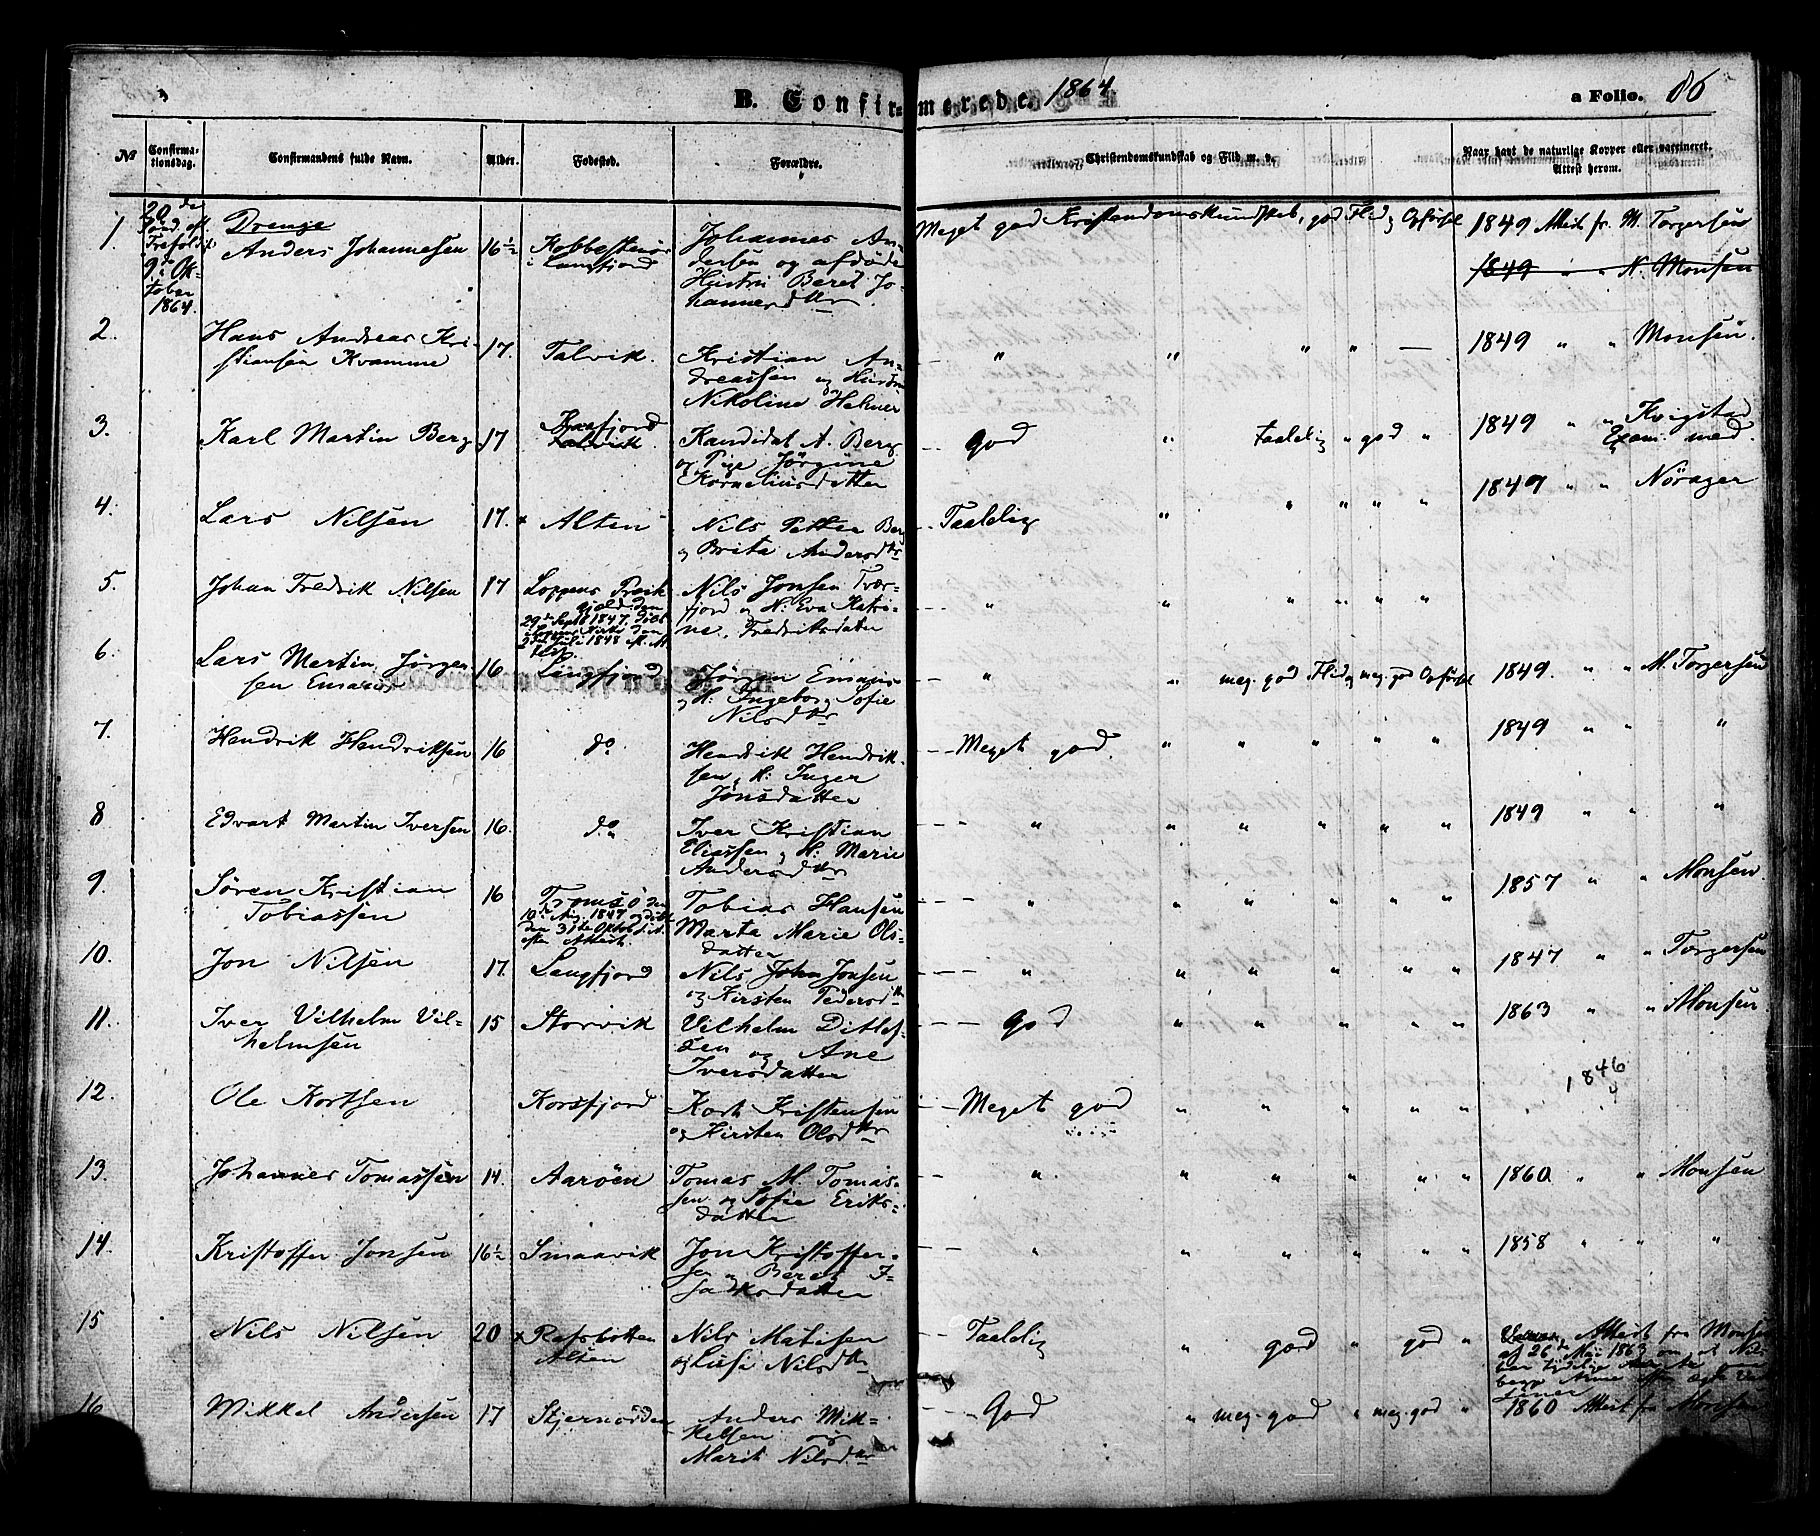 B. Confirmerede. 1864
a Folio. 86
№
Confirmationsdag.
Confirmandens fulde Navn.
Alder.
Fødested.
Forældre.
Christendomskundskab og Flid m. v.
Naar havt de naturlige Kopper eller vaccineret. Attest herom.
1. 20de Sønd. eft. Trefoldigh. 9de Oktober 1864.
Drenge
Anders Johannesen 16½ i Langfjord Johannes Andersen og afdøde Hustru Beret Johannesdtr Meget god Kristendomskundskab, god Flid og Opførsel 1849 Attest fr. M. Torgersen
1849 " " N. Monsen
2. Hans Andreas Kristiansen Kvamme 17. Talvik. Kristian Andreassen og Hustru Nikoline Helmer " " " " — 1849 " " Monsen.
3. Karl Martin Berg 17 Talvik Kandidat A. Berg og Pige Jørgine Korneliusdatter God " taalelig " god " 1849 " " Kvigstad Exam. med.
4. Lars Nilsen 17. Alten Nils Petter Berg og Brita Andersdtr Taalelig " " " " " 1847 " " Nørager
5. Johan Fredrik Nilsen 17 Loppens Præstegjeld den 29de Septb 1847, døbt i Loppens Kirke den 2den Juli 1848 Nils Jonsen Tværfjord og H. Eva Katrine Fredriksdatter " " " " " "
6. Lars Martin Jørgensen Emaus 16 Langfjord Jørgen Emaus og H. Ingeborg Sofie Nilsdtr " " meg. god Flid og meg. god Opførsel 1849. " " M. Torgersen
7. Hendrik Hendriksen 16 do. Hendrik Hendriksen, H. Inger Jonsdatter Meget god. " " " " " 1849 " " "
8 Edvart Martin Iversen 16. do. Iver Kristian Eliassen og H. Marie Andersdtr " " " " " " 1849 " " "
9. Søren Kristian Tobiassen 16 Tromsø den 10de Aug. 1847 og døbt den 31te Oktob d. A. efter Attest. Tobias Hansen Marta Marie Olsdatter " " " " " " 1857 " " Monsen.
10. Jon Nilsen 17. Langfjord Nils John Jonsen og Kirsten Pedersdtr " " " " " " 1847 " " Torgersen
11. Iver Vilhelm Vilhelmsen 15 Storvik Vilhelm Ditlefsen og Ane Iversdatter God " " " " " 1863 " " Monsen.
12. Ole Kortsen Korsfjord Kort Kristensen og Kirsten Olsdtr Meget god " " " " " 1846
13. Johannes Tomassen 14. Aarøen Tomas M. Tomassen og Sofie Eriksdatter " " " " " " 1860 " " Monsen
14. Kristoffer Jonsen 16½ Smaavik Jon Kristoffersen og Beret Isaksdatter " " " " " " 1858 " " "
15 Nils Nilsen 20 Refsbotten Alten Nils Matisen og Lusi Nilsdtr Taalelig " god " god " Attest fra Monsen af 26de Mai 1863 om at Nils
16 Mikkel Andersen 17 Stjernødden Anders Mikkelsen og Marit Nilsdtr God " meg. god " meg. god " 1860 Attest fr. Monsen